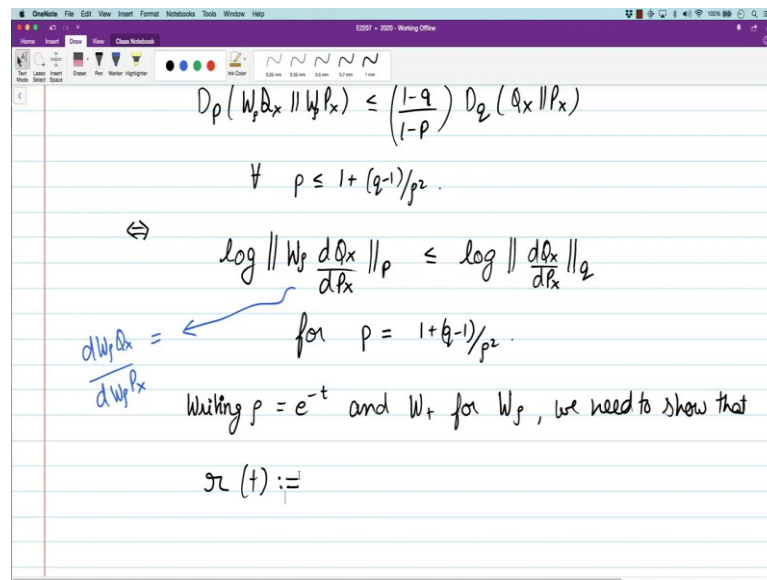 OneNote File Edit View Insert Format Notebooks Tools Window Help 100%
E2207 - 2020 - Working Offline
Home Insert Draw View Class Notebook
Text Mode Lasso Select Insert Space Eraser Pen Marker Highlighter Ink Color 0.25 mm 0.35 mm 0.5 mm 0.7 mm 1 mm
D_p ( W_ρ Q_x || W_ρ P_x ) ≤ ( (1-q) / (1-p) ) D_q ( Q_x || P_x )
∀ p ≤ 1 + (q-1)/ρ² .
⇔
log || W_ρ dQ_x/dP_x ||_p ≤ log || dQ_x/dP_x ||_q
for p = 1+(q-1)/ρ² .
dW_ρQ_x / dW_ρP_x =
Writing ρ = e^{-t} and W_t for W_ρ , we need to show that
r (t) :=